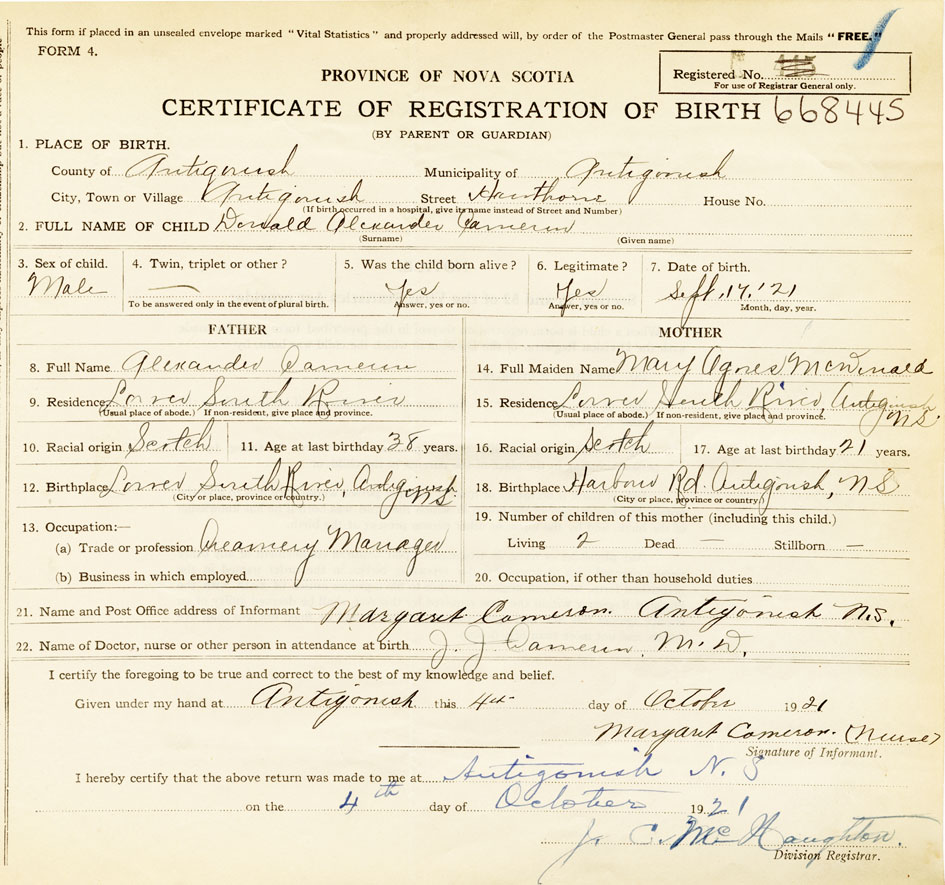 This form if placed in an unsealed envelope marked "Vital Statistics" and properly addressed will, by order of the Postmaster General pass through the Mails "FREE."
FORM 4.
Registered No.
For use of Registrar General only.
PROVINCE OF NOVA SCOTIA
CERTIFICATE OF REGISTRATION OF BIRTH 668445
(BY PARENT OR GUARDIAN)
1. PLACE OF BIRTH.
County of Antigonish Municipality of Antigonish
City, Town or Village Antigonish Street Hawthorne House No.
(If birth occurred in a hospital, give its name instead of Street and Number)
2. FULL NAME OF CHILD Donald Alexander Cameron
(Surname) (Given name)
3. Sex of child. 4. Twin, triplet or other? 5. Was the child born alive? 6. Legitimate? 7. Date of birth.
Male — Yes Yes Sept. 17, '21
To be answered only in the event of plural birth. Answer, yes or no. Answer, yes or no. Month, day, year.
FATHER MOTHER
8. Full Name Alexander Cameron 14. Full Maiden Name Mary Agnes McDonald
9. Residence Lower South River 15. Residence Lower South River, Antigonish NS
(Usual place of abode.) If non-resident, give place and province. (Usual place of abode.) If non-resident, give place and province.
10. Racial origin Scotch 11. Age at last birthday 38 years. 16. Racial origin Scotch 17. Age at last birthday 21 years.
12. Birthplace Lower South River, Antigonish NS 18. Birthplace Harbour Rd. Antigonish, NS
(City or place, province or country.) (City or place, province or country)
13. Occupation:— 19. Number of children of this mother (including this child.)
(a) Trade or profession Creamery Manager Living 2 Dead — Stillborn —
(b) Business in which employed 20. Occupation, if other than household duties
21. Name and Post Office address of Informant Margaret Cameron. Antigonish N.S.
22. Name of Doctor, nurse or other person in attendance at birth J. J. Cameron, M.D.
I certify the foregoing to be true and correct to the best of my knowledge and belief.
Given under my hand at Antigonish this 4th day of October 1921
Margaret Cameron. (Nurse)
Signature of Informant.
I hereby certify that the above return was made to me at Antigonish N.S
on the 4th day of October 1921
J. C. McNaughton.
Division Registrar.